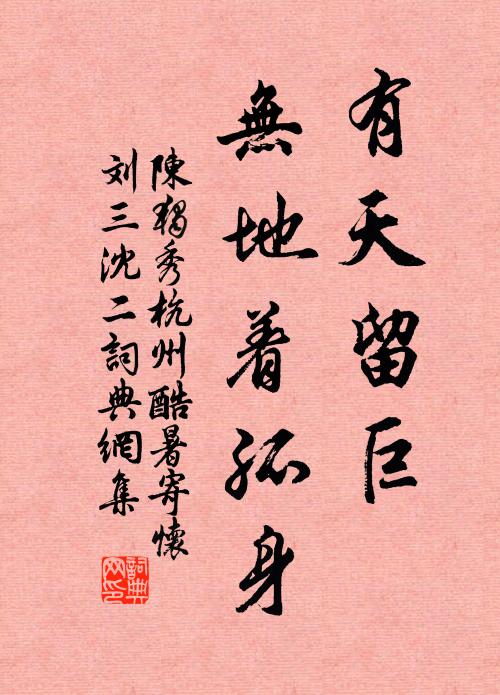 有天留巨
無地着孤身
陳独秀杭州酷暑寄懷
刘三沈二詞典網集
詞典网印